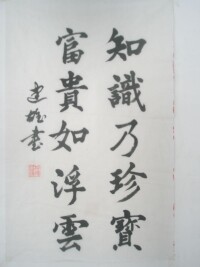 知識乃珍寶
富貴如浮雲
建雄書